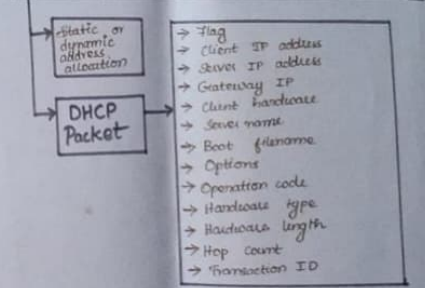 Static or
dynamic
address
allocation
DHCP
Packet
→ Flag
→ Client IP address
→ Server IP address
→ Gateway IP
→ Client hardware
→ Server name
→ Boot filename
→ Options
→ Operation code
→ Hardware type
→ Hardware length
→ Hop count
→ Transaction ID